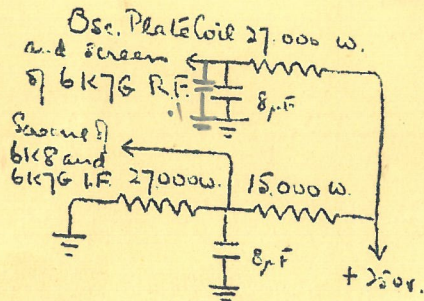 Osc. Plate Coil 27.000 w.
and screen
of 6K7G R.F.
.1
8μF
Screen of
6K8 and
6K7G I.F. 27000w. 15.000 w.
8μF
+250v.